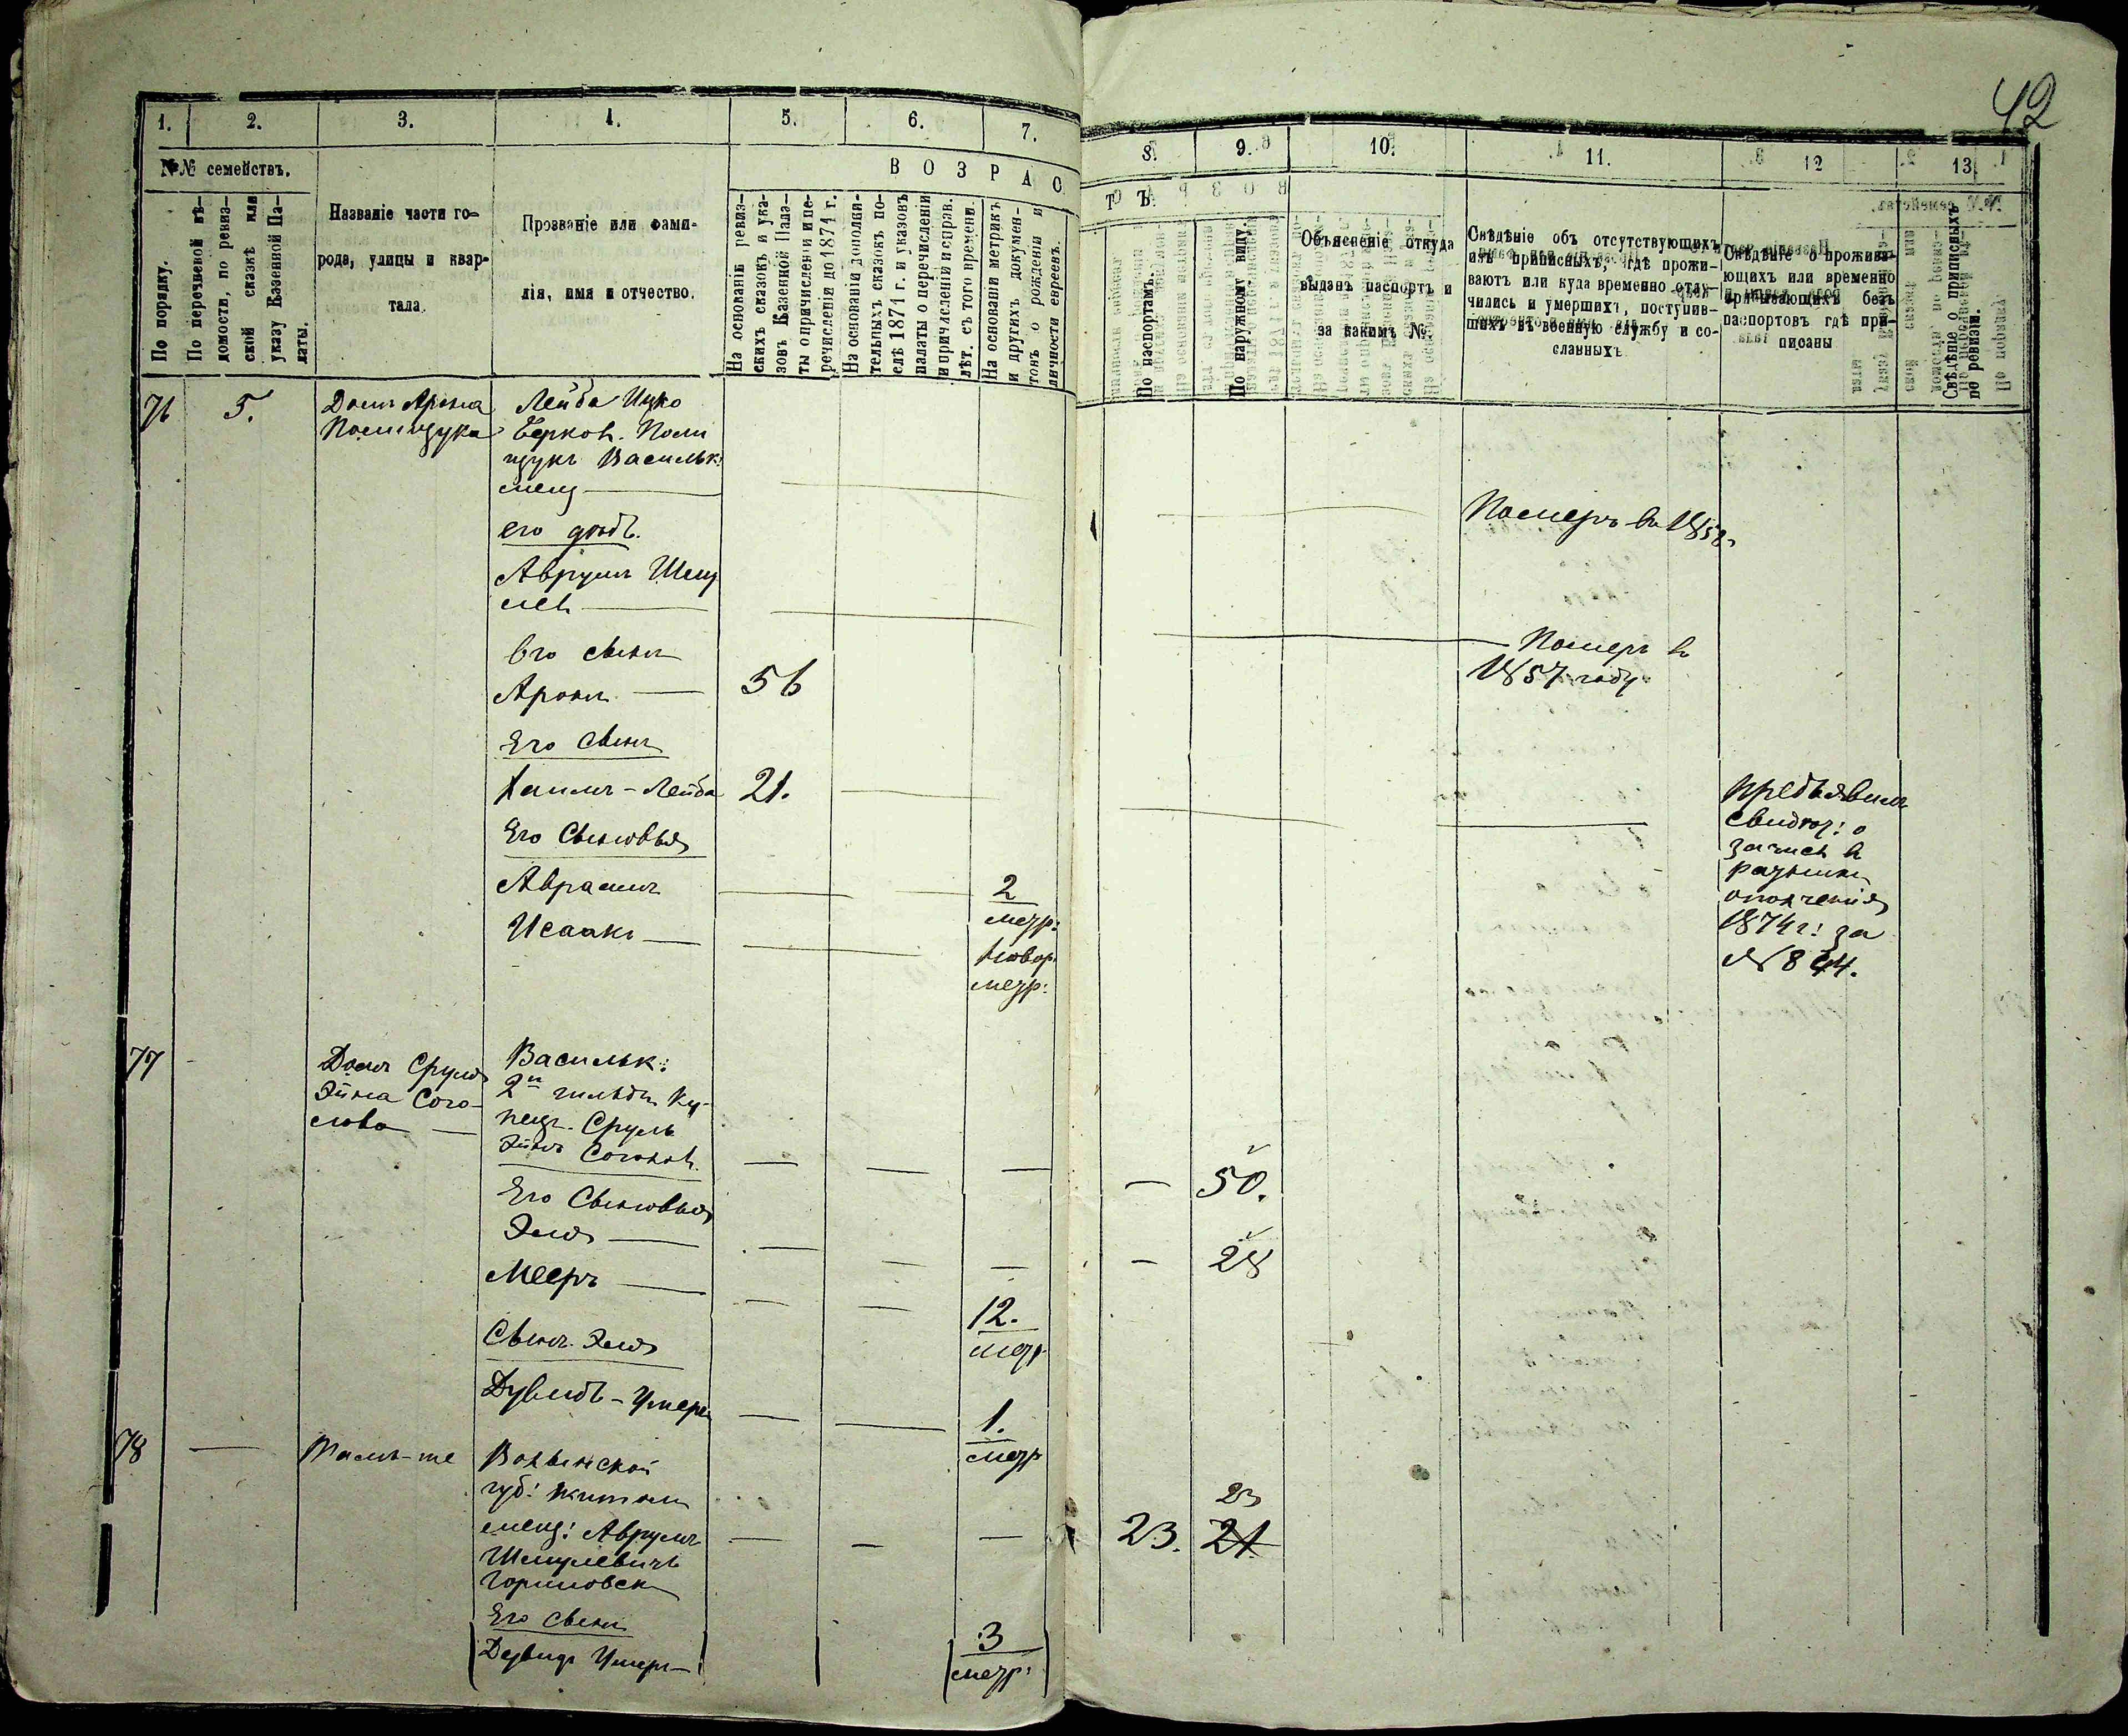 42
1. 2. 3. 4. 5. 6. 7.
8. 9. 10. 11. 12 13.
№№ семействъ.
По порядку.
По перечневой вѣ-
домости, по ревиз-
ской сказкѣ или
указу Казенной Па-
латы.
Названіе части го-
рода, улицы и квар-
тала.
Прозваніе или фами-
лія, имя и отчество.
ВОЗРАС
На основаніи ревиз-
скихъ сказокъ и ука-
зовъ Казенной Пала-
ты о причисленіи и пе-
речисленіи до 1871 г.
На основаніи дополни-
тельныхъ сказокъ по-
слѣ 1871 г. и указовъ
палаты о перечисленіи
и причисленіи и справ.
лѣт. съ того времени.
На основаніи метрикъ
и другихъ докумен-
товъ о рожденіи и
личности евреевъ.
ТЪ.
По паспортамъ.
По наружному виду.
Объясненіе откуда
выданъ паспортъ и
за какимъ №.
Свѣдѣніе объ отсутствующихъ
изъ приписныхъ, гдѣ прожи-
ваютъ или куда временно отлу-
чились и умершихъ, поступив-
шихъ въ военную службу и со-
сланныхъ
Свѣдѣніе о прожива-
ющихъ или временно
пребывающихъ безъ
паспортовъ гдѣ при-
писаны
Свѣдѣніе о приписныхъ
по ревизіи.
76 5. Домъ Арона
Полищука
Лейба Ицко
Берков. Поли
щукъ Васильк:
мещ
Померъ въ 1858
его дядъ.
Аврумъ Шму
лев
Померъ въ
1857 году
Его сынъ
Аронъ 56
Его сынъ
Хаимъ-Лейба 21.
Предъявилъ
свидѣт: о
зачисл въ
ополченія
1874 г: за
№ 844.
Его Сыновья
Аврамъ 2
метр:
Исаакъ
метр:
77 Домъ Сруля
Эйна
Васильк:
2й гильдіи Ку-
пецъ Сруль
50.
Его Сыновья
Эля 28
Мееръ 12.
метр
Сынъ Эля
Дувидъ-Умеръ 1.
метр
78 Тамъ-же Волынской
губ: Житом
мещ: Аврумъ
Шмулевичъ
23. 21 23
Его сынъ
Дувидъ Умеръ 3
метр: